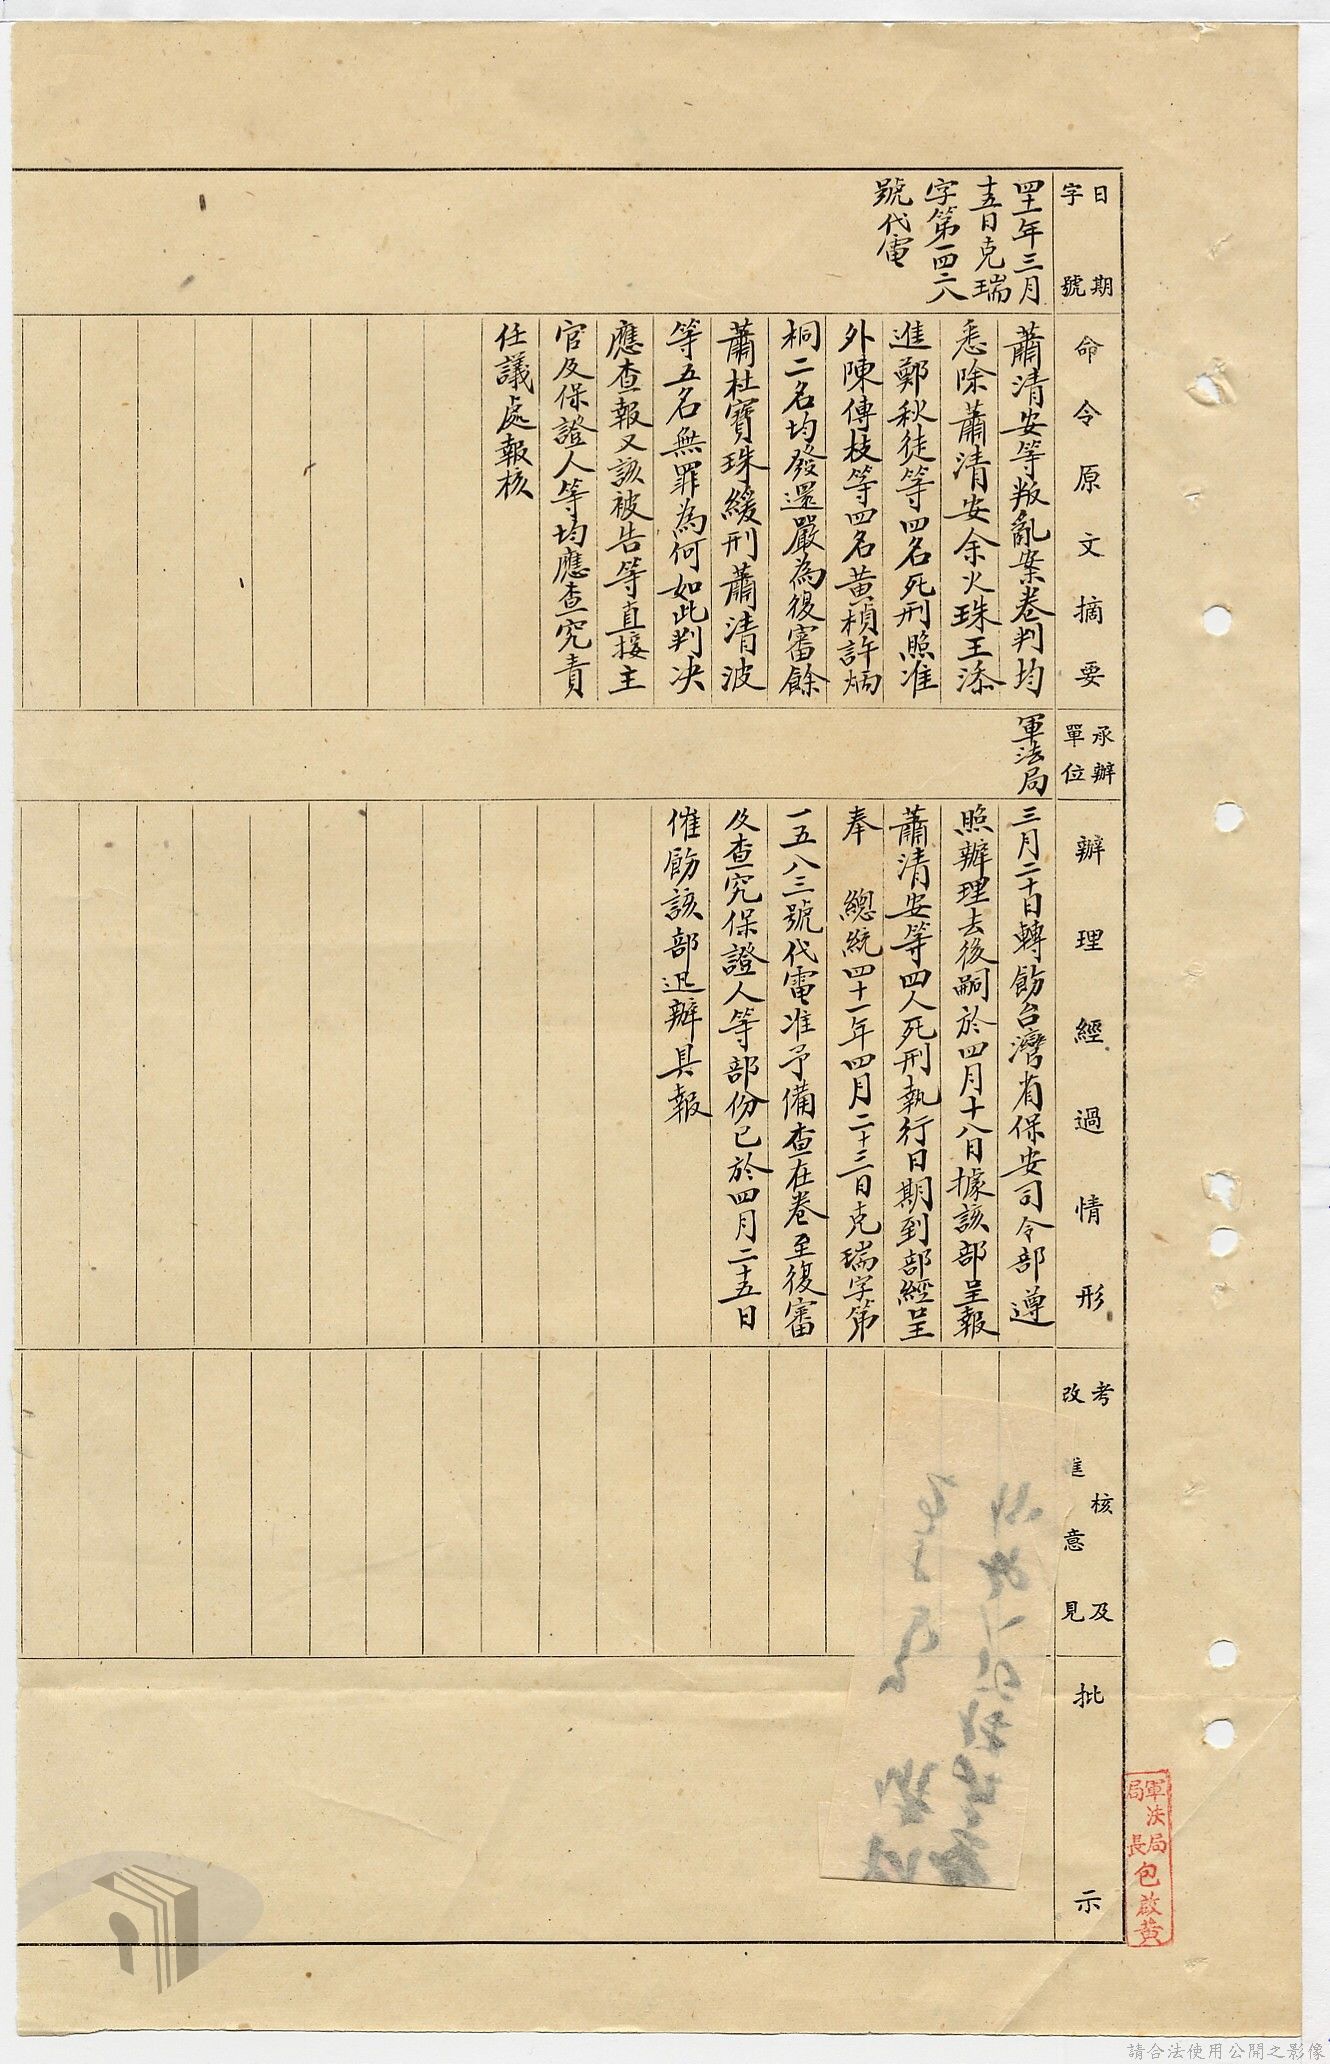 日期
字號
四十一年三月
十五日克瑞
字第一四六
號代電
命令原文摘要
蕭清安等叛亂案卷判均
悉除蕭清安余火珠王添
進鄭秋徒等四名死刑照准
外陳傳枝等四名黃楨許炳
桐二名均發還嚴為復審餘
蕭杜寶珠緩刑蕭清波
等五名無罪為何如此判決
應查報又該被告等直接主
官及保證人等均應查究責
任議處報核
承辦
單位
軍法局
辦理經過情形
三月二十日轉飭台灣省保安司令部遵
照辦理去後嗣於四月十八日據該部呈報
蕭清安等四人死刑執行日期到部經呈
奉 總統四十一年四月二十三日克瑞字第
一五八三號代電准予備查在卷至復審
及查究保證人等部份已於四月二十五日
催飭該部迅辦具報
考核及
改進意見
批示
軍法局
局長
包啟黃
請合法使用公開之影像